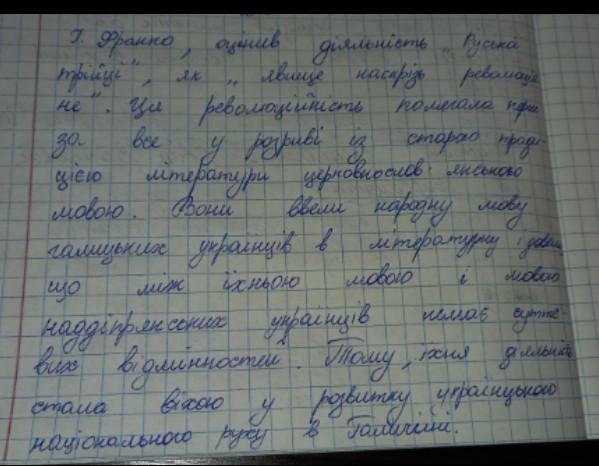 І. Франко, оцінив діяльність „Руської
трійці", як „явище наскрізь революцій
не". Ця революційність полягала перш
за все у розриві із старою тради-
цією літератури церковнослов'янською
мовою. Вони ввели народну мову
галицьких українців в літературну і довели
що між їхньою мовою і мовою
наддіпрянських українців немає сутгє-
вих відмінностей. Тому, їхня діяльність
стала віхою у розвитку українцького
національного руху в Галичині.